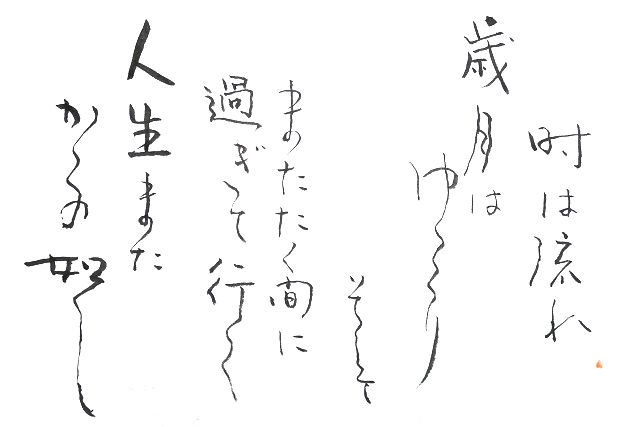 時は流れ
歳月は
ゆっくり
そして
またたく間に
過ぎて行く
人生また
かくの如し